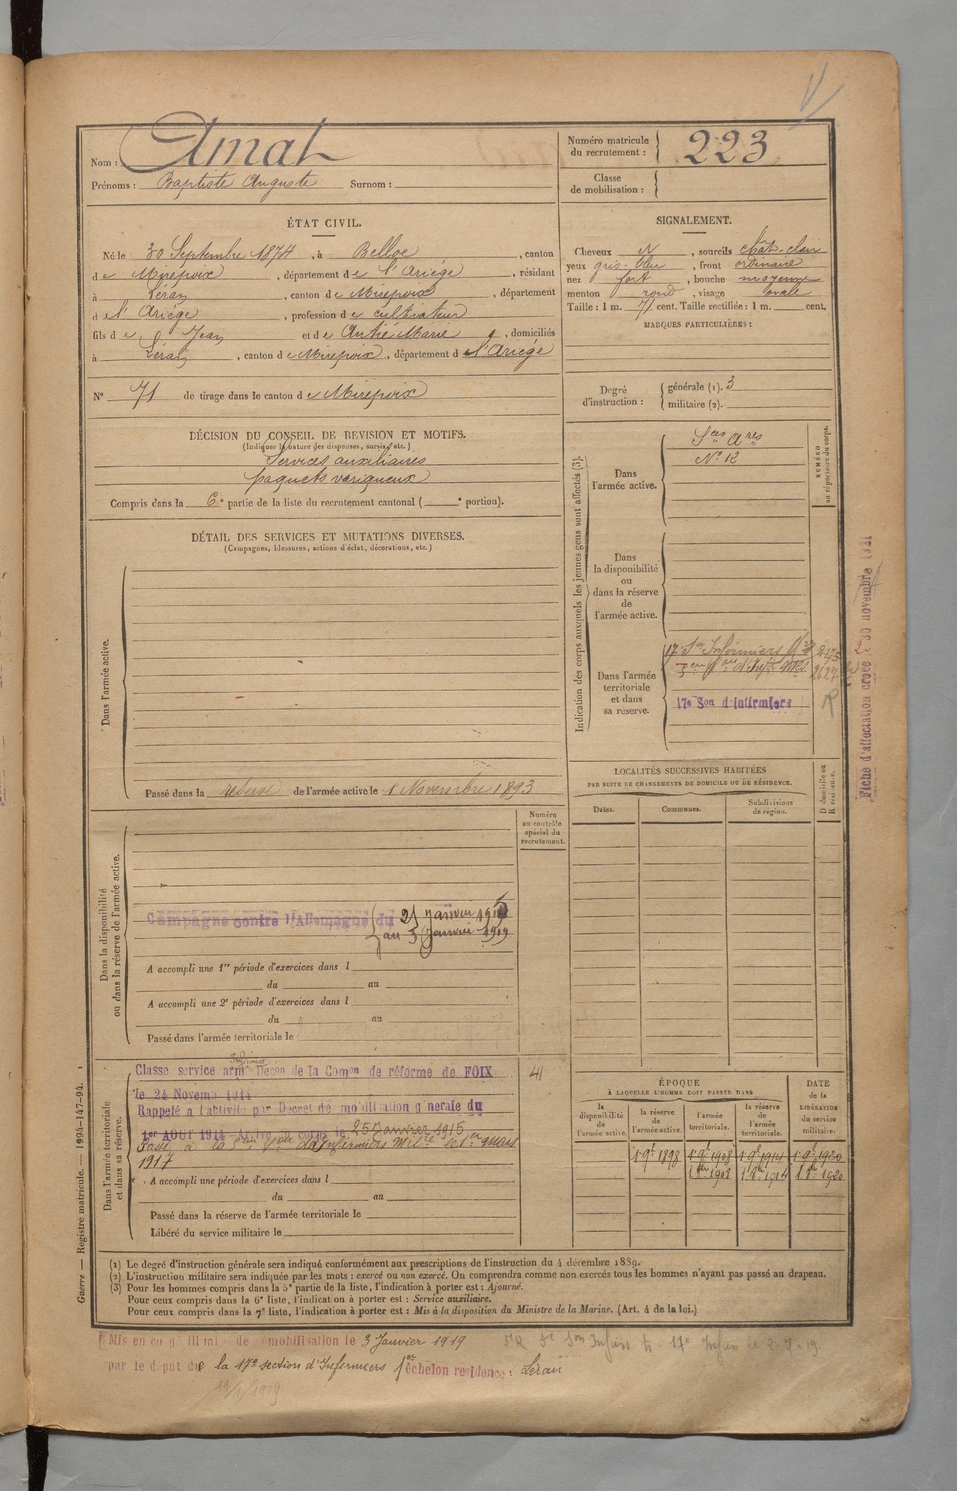 Nom : Amat
Numéro matricule du recrutement : 223
Prénoms : Baptiste Auguste Surnom :
Classe de mobilisation :
ÉTAT CIVIL.
Né le 30 Septembre 1874, à Belloc, canton
de Mirepoix, département de l'Ariége, résidant
à Léran, canton de Mirepoix, département
d el' Ariége, profession de cultivateur
fils de Jean et de Autié Marie, domiciliés
à Léran, canton de Mirepoix, département d l'Ariége
SIGNALEMENT.
Cheveux, sourcils chât-clair
yeux gris-bleu, front ordinaire
nez fort, bouche moyenne
menton rond, visage ovale
Taille : 1 m. 71 cent. Taille rectifiée : 1 m. cent.
MARQUES PARTICULIÈRES :
N° 71 de tirage dans le canton de Mirepoix
Degré d'instruction : générale (1). 3
militaire (2).
DÉCISION DU CONSEIL DE REVISION ET MOTIFS.
(Indiquer la nature des dispenses, sursis, etc.)
Services auxiliaires
paquets variqueux
Compris dans la 6e partie de la liste du recrutement cantonal ( e portion).
DÉTAIL DES SERVICES ET MUTATIONS DIVERSES.
(Campagnes, blessures, actions d'éclat, décorations, etc.)
Dans l'armée active.
Passé dans la réserve de l'armée active le 1 Novembre 1893
Indication des corps auxquels les jeunes gens sont affectés (3).
NUMÉRO au répertoire du corps.
Dans l'armée active.
Sces Ares
N° 12
Dans la disponibilité ou dans la réserve de l'armée active.
Dans l'armée territoriale et dans sa réserve.
17e Son d'Infirmiers
Fiche d'affectation créée le 30 novembre 1921
LOCALITÉS SUCCESSIVES HABITÉES
PAR SUITE DE CHANGEMENTS DE DOMICILE OU DE RÉSIDENCE.
Dates. Communes. Subdivisions de région. D domicile ou R résidence.
Numéro au contrôle spécial du recrutement.
Dans la disponibilité ou dans la réserve de l'armée active.
Campagne contre l'Allemagne du 25 janvier 1915
au 3 Janvier 1919
A accompli une 1re période d'exercices dans l
du au
A accompli une 2e période d'exercices dans l
du au
Passé dans l'armée territoriale le
Dans l'armée territoriale et dans sa réserve.
Classe service armé Décon de la Comon de réforme de FOIX
41
le 24 Novem 1914
Rappelé à l'activité par Décret de mobilisation générale du
1er AOUT 1914 Arrivé au corps le 25 Janvier 1915
1917
A accompli une période d'exercices dans l
du au
Passé dans la réserve de l'armée territoriale le
Libéré du service militaire le
ÉPOQUE
À LAQUELLE L'HOMME DOIT PASSER DANS
DATE de la LIBÉRATION du service militaire.
la disponibilité de l'armée active. la réserve de l'armée active. l'armée territoriale. la réserve de l'armée territoriale.
1 9bre 1898 1 9bre 1908 1 9bre 1914 1 9bre 1920
(1) Le degré d'instruction générale sera indiqué conformément aux prescriptions de l'instruction du 4 décembre 1889.
(2) L'instruction militaire sera indiquée par les mots : exercé ou non exercé. On comprendra comme non exercés tous les hommes n'ayant pas passé au drapeau.
(3) Pour les hommes compris dans la 5e partie de la liste, l'indication à porter est : Ajourné.
Pour ceux compris dans la 6e liste, l'indication à porter est : Service auxiliaire.
Pour ceux compris dans la 7e liste, l'indication à porter est : Mis à la disposition du Ministre de la Marine. (Art. 4 de la loi.)
Guerre — Registre matricule. — 1894-147-94.
Mis en congé illimité de démobilisation le 3 Janvier 1919
par le dépôt de la 17e section d'Infirmiers 1er échelon résidence : Léran